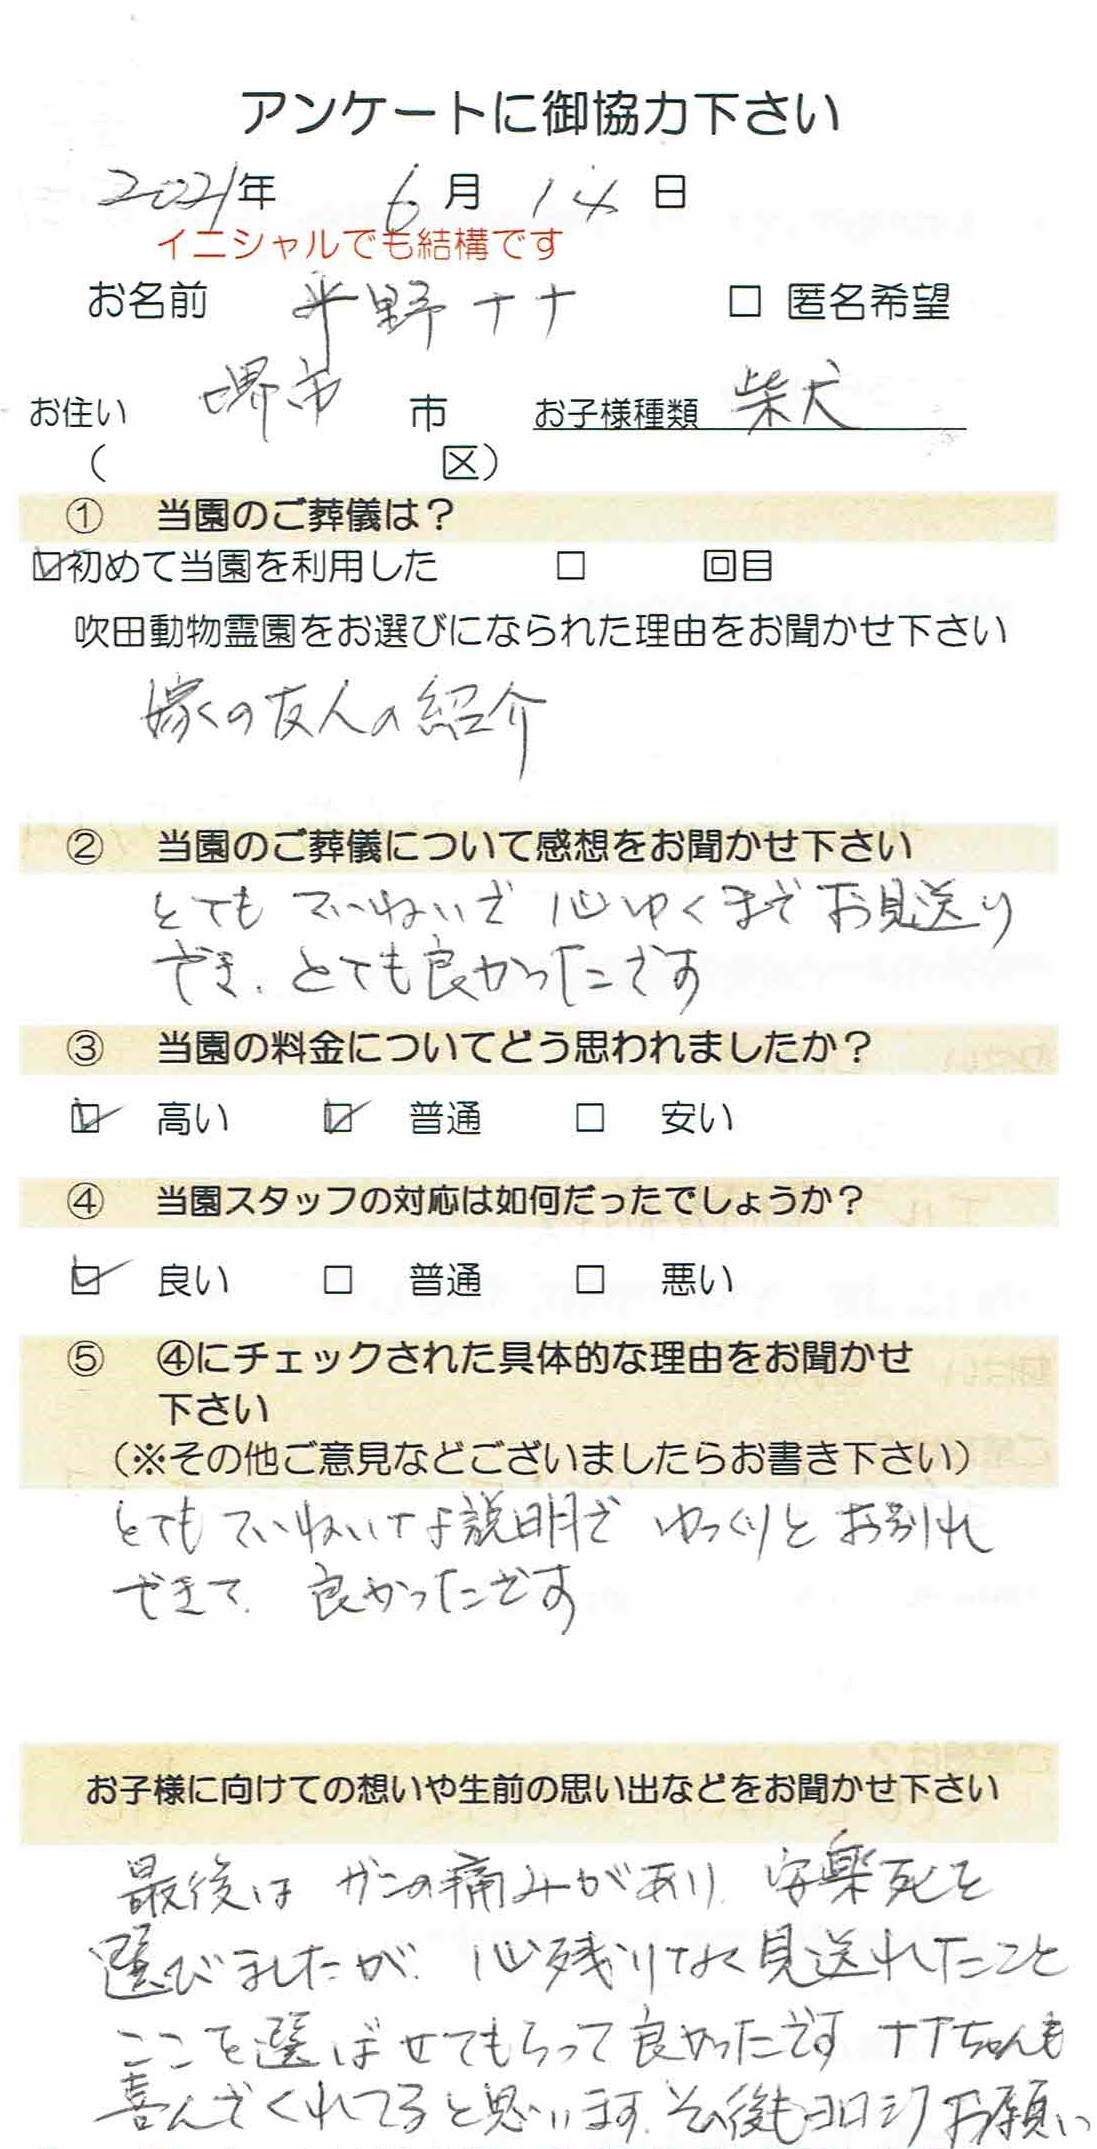 アンケートに御協力下さい
2021年 6月 14日
イニシャルでも結構です
お名前 平野ナナ □ 匿名希望
お住い 堺市 市 お子様種類 柴犬
( 区)
① 当園のご葬儀は？
☑初めて当園を利用した □ 回目
吹田動物霊園をお選びになられた理由をお聞かせ下さい
嫁くの友人の紹介
② 当園のご葬儀について感想をお聞かせ下さい
とても ていねいで 心ゆくまで お見送り
でき、とても良かったです
③ 当園の料金についてどう思われましたか？
☑ 高い ☑ 普通 □ 安い
④ 当園スタッフの対応は如何だったでしょうか？
☑ 良い □ 普通 □ 悪い
⑤ ④にチェックされた具体的な理由をお聞かせ
下さい
（※その他ご意見などございましたらお書き下さい）
とても ていねいな説明で ゆっくりと お別れ
できて、良かったです
お子様に向けての想いや生前の思い出などをお聞かせ下さい
最後は ガンの痛みがあり、安楽死を
選びましたが、心残りなく見送れたこと
ここを選ばせてもらって良かったです ナナちゃんも
喜んでくれてると思います。その後もヨロシクお願い